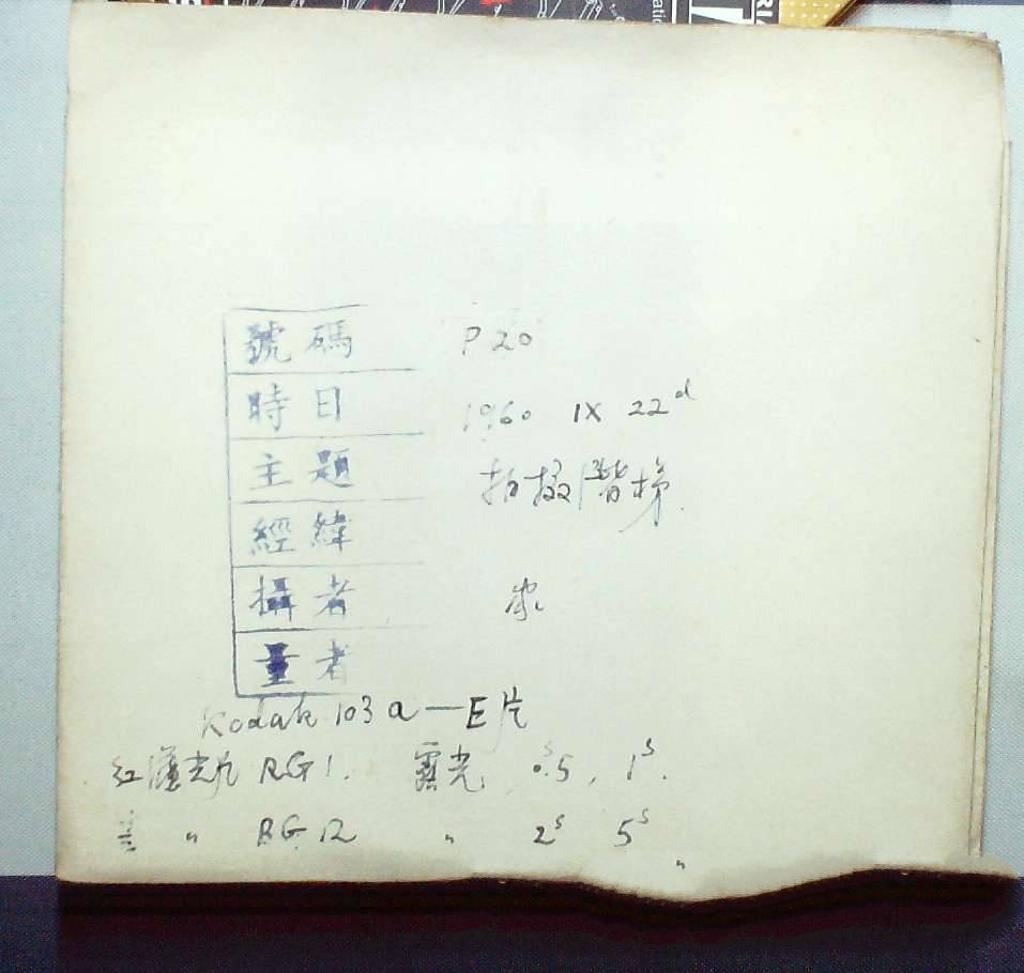 號碼 P 20
時日 1960 IX 22d
主題 拍攝階梯
經緯
攝者
量者
Kodak 103 a—E片
紅濾光片 RG1. 露光 0.5s, 1s.
" BG 12 " 2s 5s "